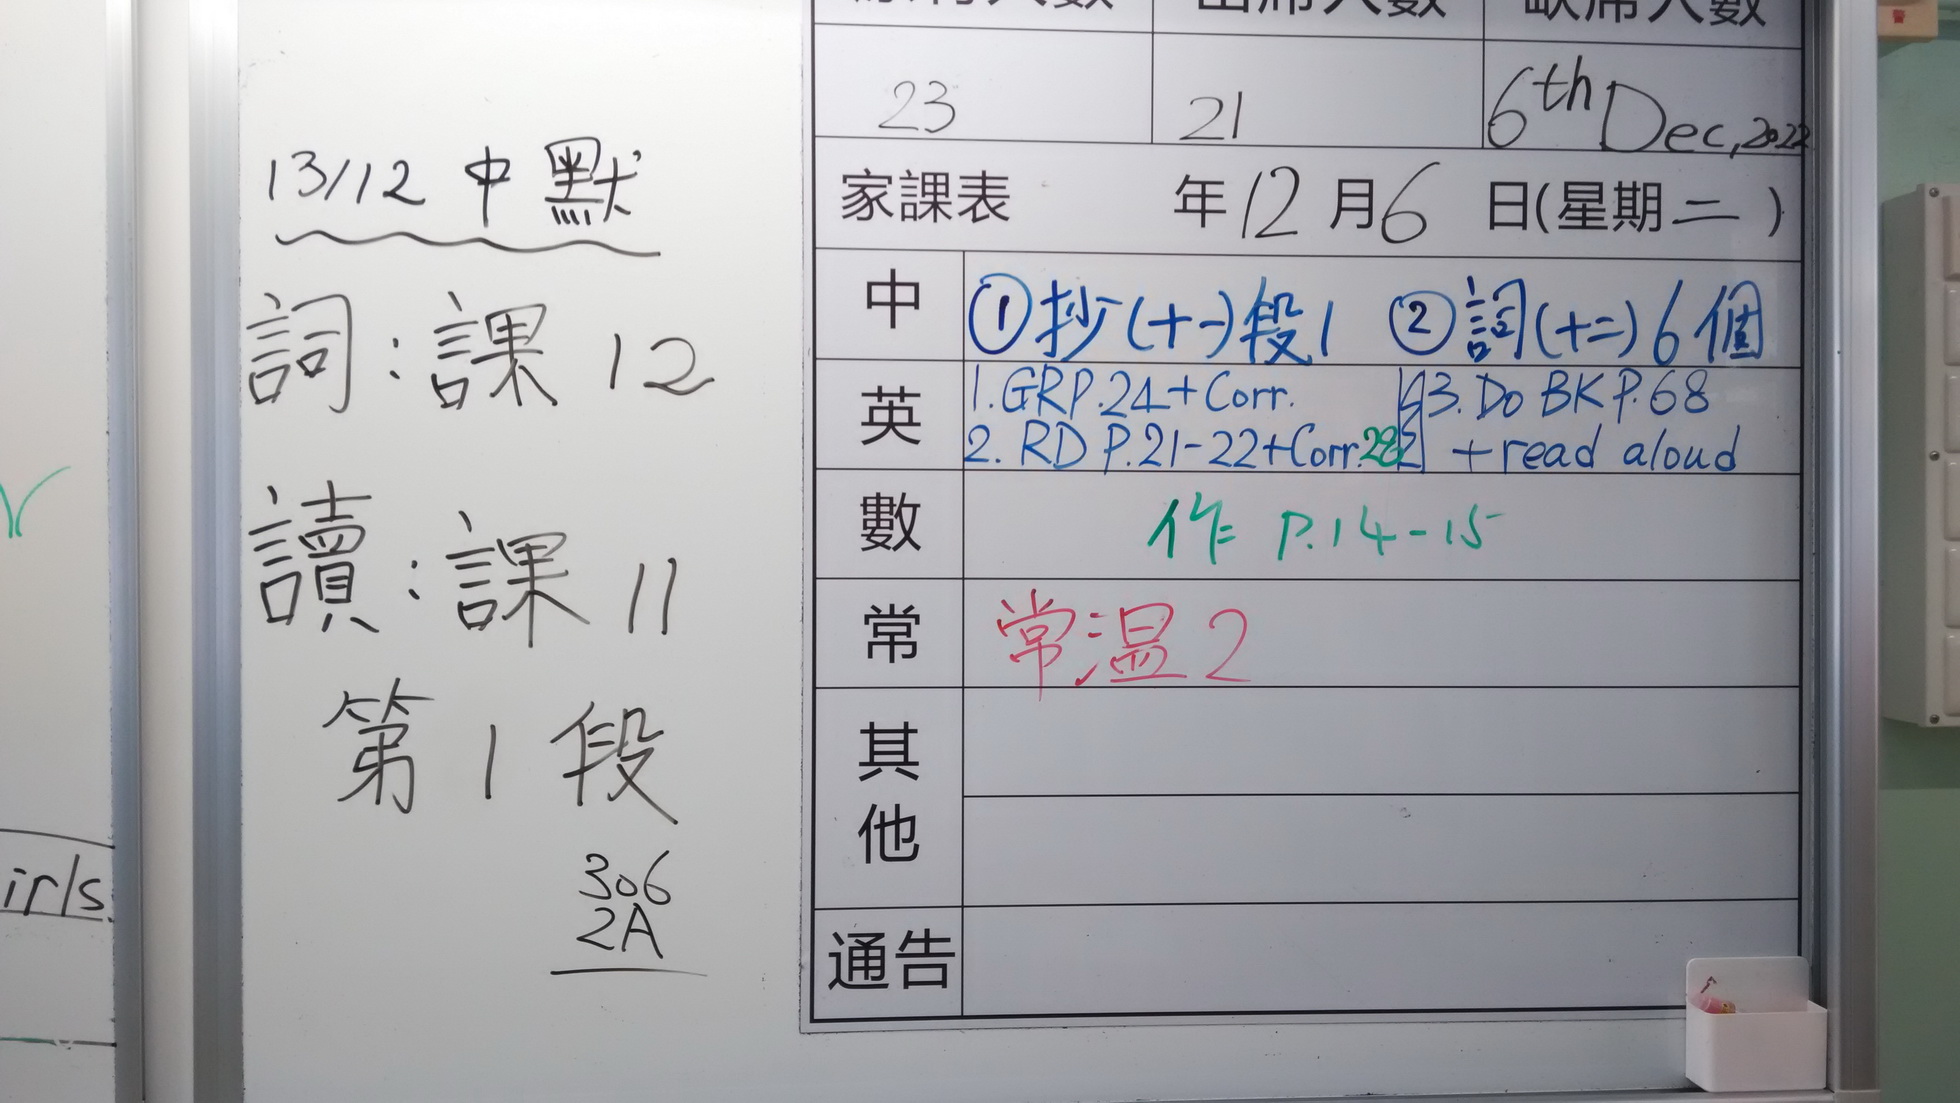 13/12 中默
詞：課 12
讀：課 11
第 1 段
306
2A
irls
出席人數 缺席人數
23 21 6th Dec, 2022
家課表 年 12 月 6 日(星期二)
中 ①抄(十一)段1 ②詞(十二)6個
英 1. GR P.24+Corr. 3. Do BK P.68
2. RD P.21-22+Corr. +read aloud
數 作 P.14-15
常 常溫2
其他
通告